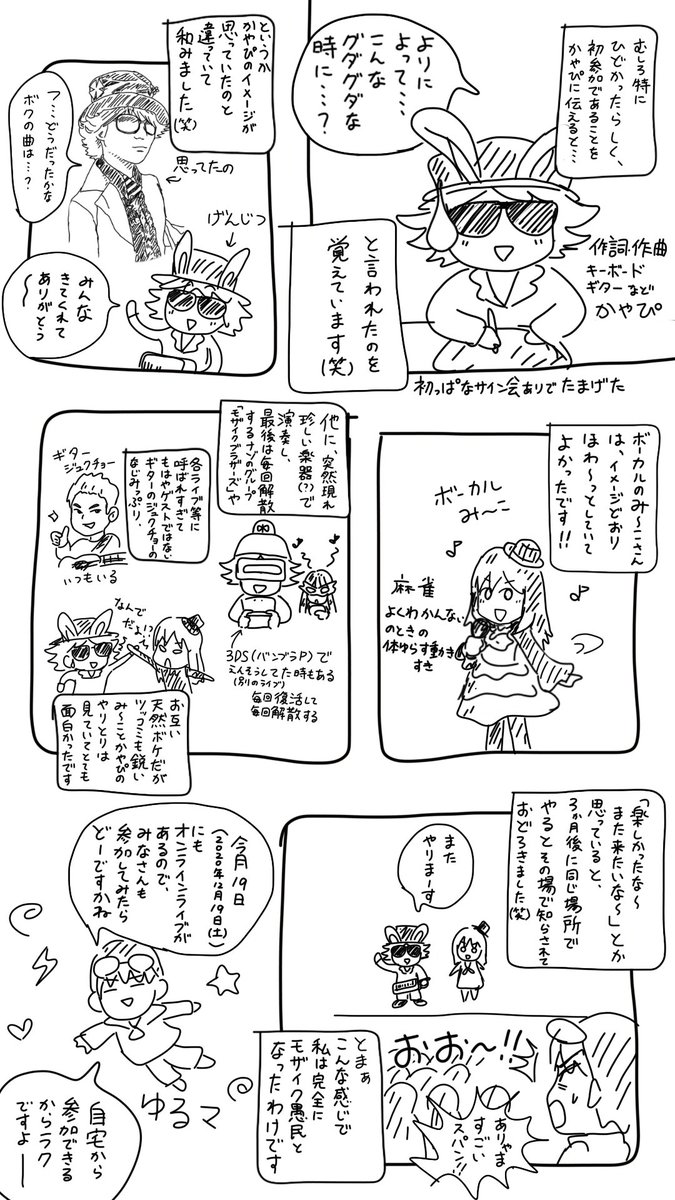 むしろ特に
ひどかったらしく、
初参加であることを
かやぴに伝えると…
よりに
よって…
こんな
グダグダな
時に…?
作詞・作曲
キーボード
ギター など
かやぴ
と言われたのを
覚えています
(笑)
初っぱなサイン会ありでたまげた
というか
かやぴのイメージが
思っていたのと
違っていて
和みました
(笑)
フ…どうだったかな
ボクの曲は…?
思ってたの
げんじつ
みんな
きてくれて
ありがとう
〜
ボーカルのみ〜こさん
は、イメージどおり
ほわ〜っとしていて
よかったです!!
ボーカル
み〜こ
麻雀
よくわかんない
のときの
体ゆらす動き
すき
他に、突然現れ
珍しい楽器(?)で
演奏し、
最後は毎回解散
するナゾのグループ
「モザイクブラザーズ」や
3DS(バンブラP)で
えんそうしてた時もある
(別のライブ)
毎回復活して
毎回解散する
各ライブ等に
呼ばれすぎて
もはやゲストではない
ギターのジュクチョーの
なじみっぷり、
ギター
ジュクチョー
いつもいる
なんで
だよ!!
お互い
天然ボケだが
ツッコミも鋭い
み〜ことかやぴの
やりとりは
見ていてとても
面白かったです
「楽しかったな〜
また来たいな〜」とか
思っていると、
3ヵ月後に同じ場所で
やるとその場で知らされて
おどろきました(笑)
また
やりまーす
おお〜!!
ありゃま
すごい
スパン!!
とまぁ
こんな感じで
私は完全に
モザイク愚民と
なったわけです
今月19日
(2020年12月19日(土))
にも
オンラインライブが
あるので、
みなさんも
参加してみたら
どーですかね
ゆるマ
自宅から
参加できる
からラク
ですよー